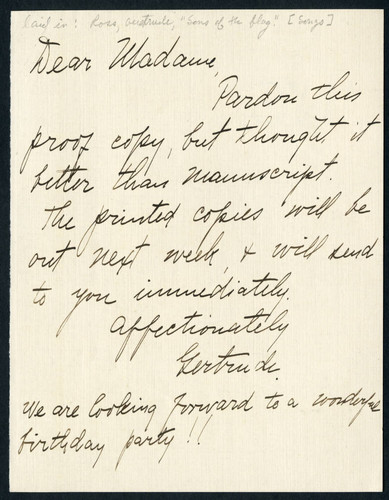 laid in: Ross, Gertrude, "Sons of the flag." [Songs]
Dear Madame,
Pardon this
proof copy, but thought it
better than manuscript.
The printed copies will be
out next week, & will send
to you immediately.
Affectionately
Gertrude.
We are looking forward to a wonderful
birthday party!!